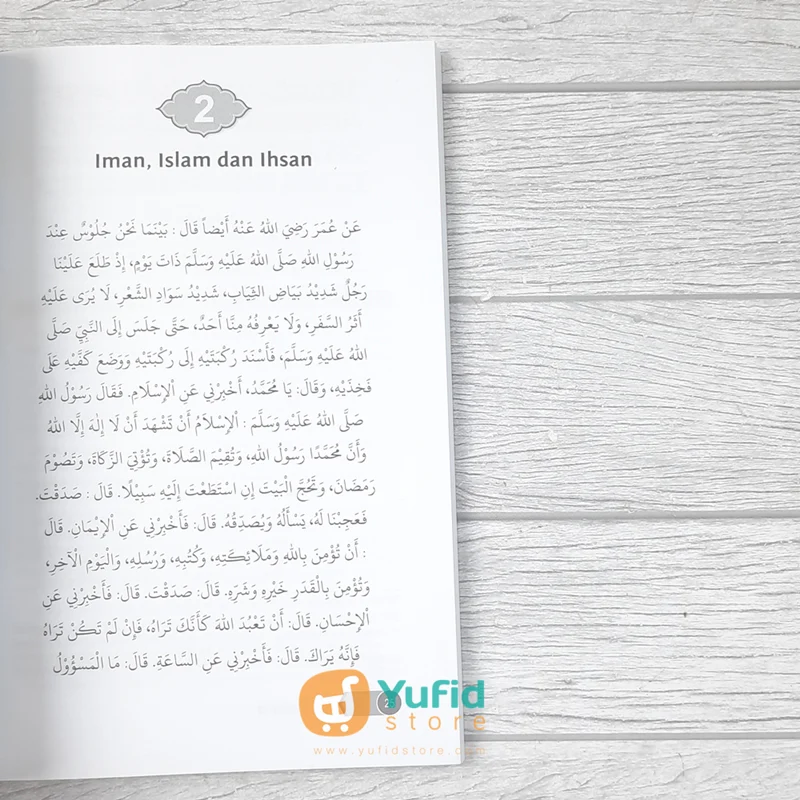 2
Iman, Islam dan Ihsan
عَنْ عُمَرَ رَضِيَ اللهُ عَنْهُ أَيْضاً قَالَ : بَيْنَمَا نَحْنُ جُلُوْسٌ عِنْدَ
رَسُوْلِ اللهِ صَلَّى اللهُ عَلَيْهِ وَسَلَّمَ ذَاتَ يَوْمٍ، إِذْ طَلَعَ عَلَيْنَا
رَجُلٌ شَدِيْدُ بَيَاضِ الثِّيَابِ، شَدِيْدُ سَوَادِ الشَّعْرِ، لَا يُرَى عَلَيْهِ
أَثَرُ السَّفَرِ، وَلَا يَعْرِفُهُ مِنَّا أَحَدٌ، حَتَّى جَلَسَ إِلَى النَّبِيِّ صَلَّى
اللهُ عَلَيْهِ وَسَلَّمَ، فَأَسْنَدَ رُكْبَتَيْهِ إِلَى رُكْبَتَيْهِ وَوَضَعَ كَفَّيْهِ عَلَى
فَخِذَيْهِ، وَقَالَ: يَا مُحَمَّدُ، أَخْبِرْنِي عَنِ الْإِسْلَامِ. فَقَالَ رَسُوْلُ اللهِ
صَلَّى اللهُ عَلَيْهِ وَسَلَّمَ : اَلْإِسْلَامُ أَنْ تَشْهَدَ أَنْ لَا إِلٰهَ إِلَّا اللهُ
وَأَنَّ مُحَمَّدًا رَسُوْلُ اللهِ، وَتُقِيْمَ الصَّلَاةَ، وَتُؤْتِيَ الزَّكَاةَ، وَتَصُوْمَ
رَمَضَانَ، وَتَحُجَّ الْبَيْتَ إِنِ اسْتَطَعْتَ إِلَيْهِ سَبِيْلًا. قَالَ : صَدَقْتَ.
فَعَجِبْنَا لَهُ، يَسْأَلُهُ وَيُصَدِّقُهُ. قَالَ: فَأَخْبِرْنِي عَنِ الْإِيْمَانِ. قَالَ
: أَنْ تُؤْمِنَ بِاللهِ وَمَلَائِكَتِهِ، وَكُتُبِهِ، وَرُسُلِهِ، وَالْيَوْمِ الْآخِرِ،
وَتُؤْمِنَ بِالْقَدَرِ خَيْرِهِ وَشَرِّهِ. قَالَ: صَدَقْتَ. قَالَ: فَأَخْبِرْنِي عَنِ
الْإِحْسَانِ. قَالَ: أَنْ تَعْبُدَ اللهَ كَأَنَّكَ تَرَاهُ، فَإِنْ لَمْ تَكُنْ تَرَاهُ
فَإِنَّهُ يَرَاكَ. قَالَ: فَأَخْبِرْنِي عَنِ السَّاعَةِ. قَالَ: مَا الْمَسْؤُوْلُ
Yufid
store
www.yufidstore.com